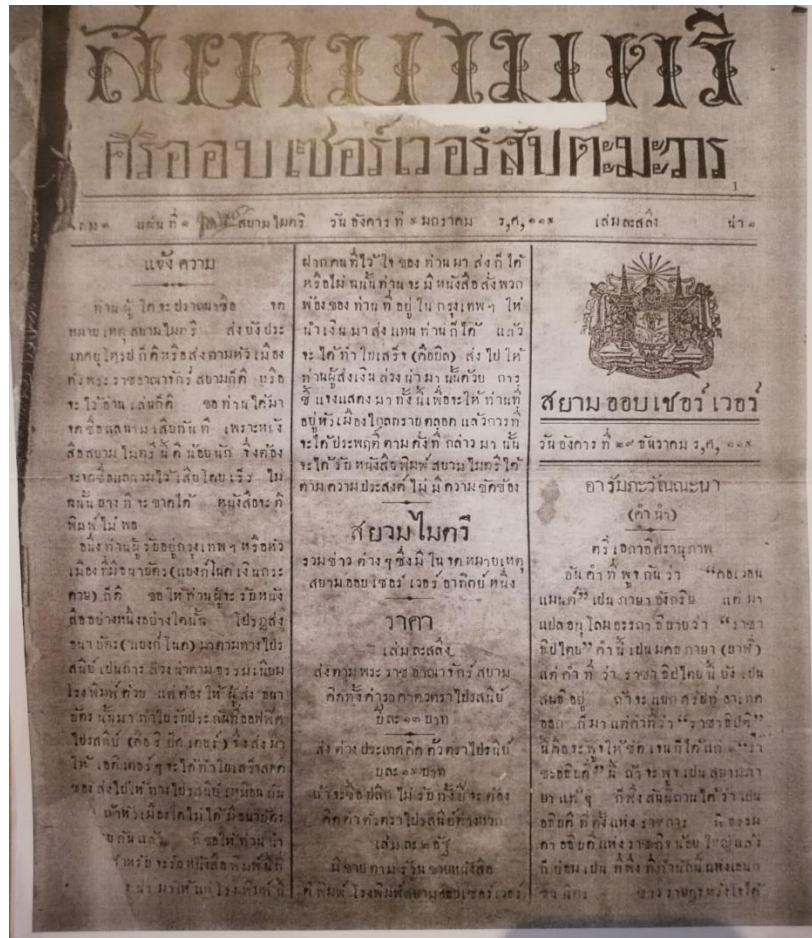 สยามไมตรี
ศิริออบเซอร์เวอร์สัปตะมะวาร
แผ่นที่ ๑ สยามไมตรี วันอังคารที่ ๙ มกราคม ร,ศ, ๑๑๙ เล่มละสลึง น่า ๑
แจ้งความ
ท่านผู้ใดจะปราถนาซื้อ จด
หมายเหตุสยามไมตรี ส่งยังประ
เทศยุโรปก็ดีหรือส่งตามหัวเมือง
ทั่วพระราชอาณาจักร์สยามก็ดี หรือ
จะไว้อ่านเล่นก็ดี ขอท่านได้มา
จดชื่อลงนามเสียทันที เพราะหนัง
สือสยามไมตรีนี้ตีน้อยนัก จึ่งต้อง
จะจดชื่อลงนามไว้เสียโดยเร็ว ไม่
นั้นบางทีจะขาดได้ หนังสือจะตี
พิมพ์ไม่พอ
อนึ่งท่านผู้รับอยู่กรุงเทพฯหรือหัว
เมืองที่มีธนาบัตร(แบงก์โนตเงินกระ
ดาษ)ก็ดี ขอให้ท่านผู้จะรับหนัง
สืออย่างหนึ่งอย่างใดนั้น โปรดส่ง
ธนาบัตร(แบงก์โนต)มาตามทางไปร
สนีย์เปนการล่วงน่าตามธรรมเนียม
โรงพิมพ์ด้วย แต่ต้องให้ผู้ส่งธนา
บัตรนั้นมาทำใบรับประกันที่ออฟฟิศ
ไปรสนีย์ (คือรียิศเตอร์) จึ่งส่งมา
ให้เอดิเตอร์ๆจะได้ทำใบเสร็จสอด
ซองส่งไปให้ทางไปรสนีย์เหมือนกัน
ถ้าหัวเมืองใดไม่ได้มีธนาบัตร
ก็ขอให้ท่านนำ
สำหรับจะรับหนังสือพิมพ์นี้ที่
นำมาให้แก่โรงพิมพ์นี้
ฝากคนที่ไว้ใจของท่านมาส่งก็ได้
หรือไม่นั้นท่านจะมีหนังสือสั่งพวก
พ้องของท่านที่อยู่ในกรุงเทพฯ ให้
นำเงินมาส่งแทนท่านก็ได้ แล้ว
จะได้ทำใบเสร็จ(คือบิล) ส่งไปให้
ท่านผู้ส่งเงินล่วงน่ามานั้นด้วย การ
ชี้แจงแสดงมาทั้งนี้เพื่อจะให้ท่านที่
อยู่หัวเมืองไกลทราบตลอด แล้วการที่
จะได้ประพฤติตามดังที่กล่าวมานั้น
จะได้รับหนังสือพิมพ์สยามไมตรีได้
ตามความประสงค์ไม่มีความขัดข้อง
สยามไมตรี
รวมข่าวต่างๆซึ่งมีในจดหมายเหตุ
สยามออบเซอร์เวอร์อาทิตย์หนึ่ง
ราคา
เล่มละสลึง
ส่งตามพระราชอาณาจักร์สยาม
คิดทั้งค่าราคาตัวตราไปรสนีย์
ปีละ๑๓บาท
ส่งต่างประเทศคิดตัวตราไปรสนีย์
ถ้าจะซื้อปลีกไม่รับทั้งปีจะต้อง
คิดค่าตัวตราไปรสนีย์ต่างหาก
เล่มละ๒อัฐ
มีขายตามร้านขายหนังสือ
ตีพิมพ์โรงพิมพ์สยามออบเซอร์เวอร์
สยามออบเซอร์เวอร์
วันอังคารที่ ๒๙ ธันวาคม ร,ศ, ๑๑๙
อารัมภะวัณณะนา
(คำนำ)
ตรีเอกาธิศรานุภาพ
อันคำที่พูดกันว่า “คอเวอน
แมนต์” เปนภาษาอังกริษ แต่มา
แปลอนุโลมอรรถาธิบายว่า “ราชา
ธิปไตย” คำนี้เปนมคธภาษา (บาฬี)
แต่คำที่ว่าราชาธิปไตยนี้ยังเปน
สนธิอยู่ ถ้าจะแยกศรัพท์อาเทศ
ออก ก็มาแต่คำที่ว่า “ราชาธิปติ”
นี้คือจะพูดให้ชัดเจนก็ได้แก่ “รา
ชะอธิบดี” นี้ ถ้าจะพูดเปนสยามภา
ษาแท้ๆ ก็พึงสันนิฐานได้ว่าเปน
อธิบดีที่ตั้งแห่งราชการ